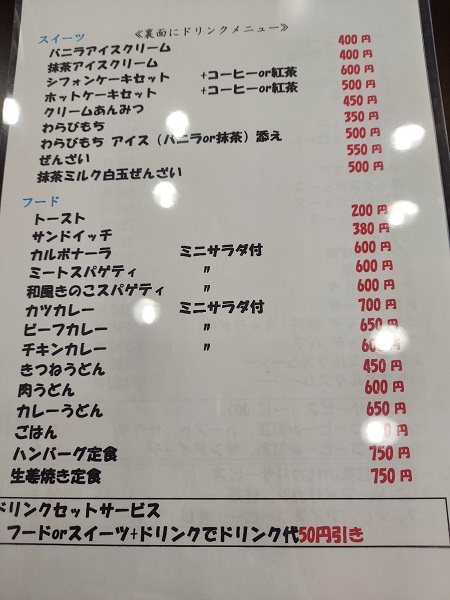 スイーツ ≪裏面にドリンクメニュー≫
バニラアイスクリーム 400 円
抹茶アイスクリーム 400 円
シフォンケーキセット +コーヒーor紅茶 600 円
ホットケーキセット +コーヒーor紅茶 500 円
クリームあんみつ 450 円
わらびもち 350 円
わらびもち アイス（バニラor抹茶）添え 500 円
ぜんざい 550 円
抹茶ミルク白玉ぜんざい 500 円
フード
トースト 200 円
サンドイッチ 380 円
カルボナーラ ミニサラダ付 600 円
ミートスパゲティ 〃 600 円
和風きのこスパゲティ 〃 600 円
カツカレー ミニサラダ付 700 円
ビーフカレー 〃 650 円
チキンカレー 〃 円
きつねうどん 450 円
肉うどん 600 円
カレーうどん 650 円
ごはん 円
ハンバーグ定食 750 円
生姜焼き定食 750 円
ドリンクセットサービス
フードorスイーツ+ドリンクでドリンク代50円引き